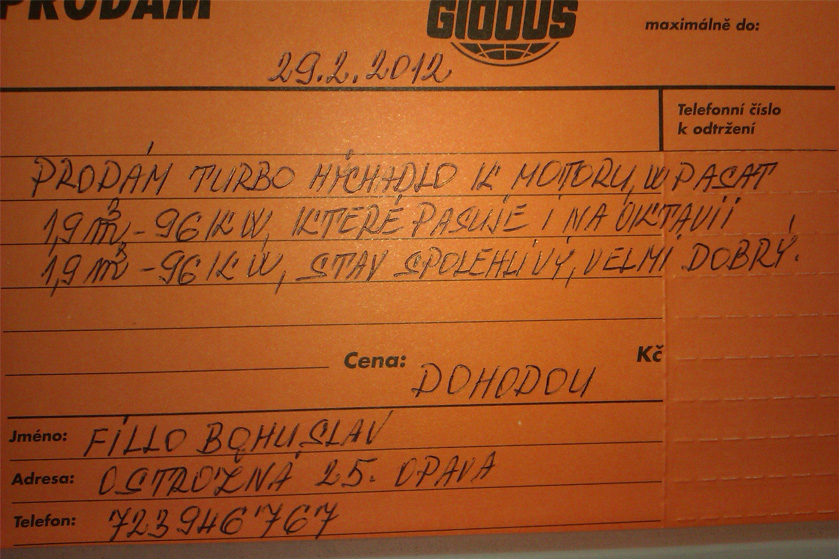 PRODÁM
GLOBUS
maximálně do:
29.2.2012
Telefonní číslo
k odtržení
PRODÁM TURBO HÝCHADLO K MOTORU, W PASAT
1,9 m³, - 96 KW, KTERÉ PASUJE I NA OKTAVII
1,9 m³ - 96 KW, STAV SPOLEHLIVÝ, VELMI DOBRÝ.
Cena: DOHODOU Kč
Jméno: FILLO BOHUSLAV
Adresa: OSTROŽNÁ 25. OPAVA
Telefon: 723946767